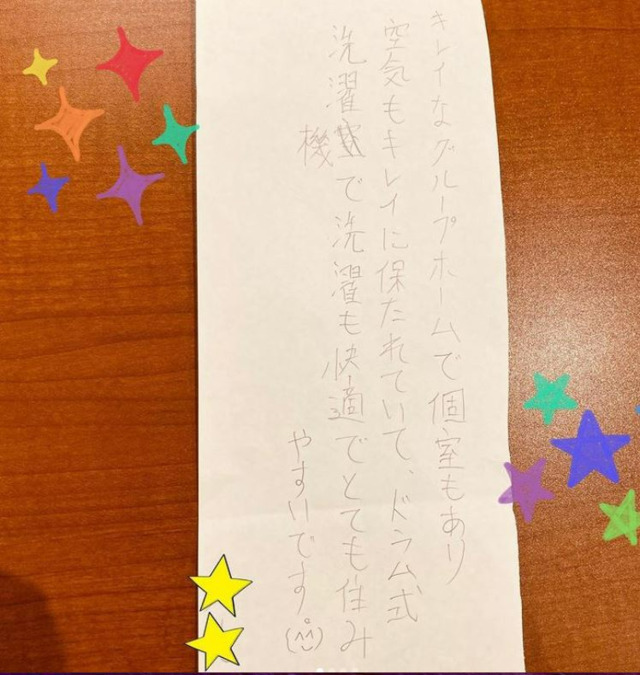 キレイなグループホームで個室もあり
空気もキレイに保たれていて、ドラム式
洗濯機で洗濯も快適でとても住み
やすいです(^^)